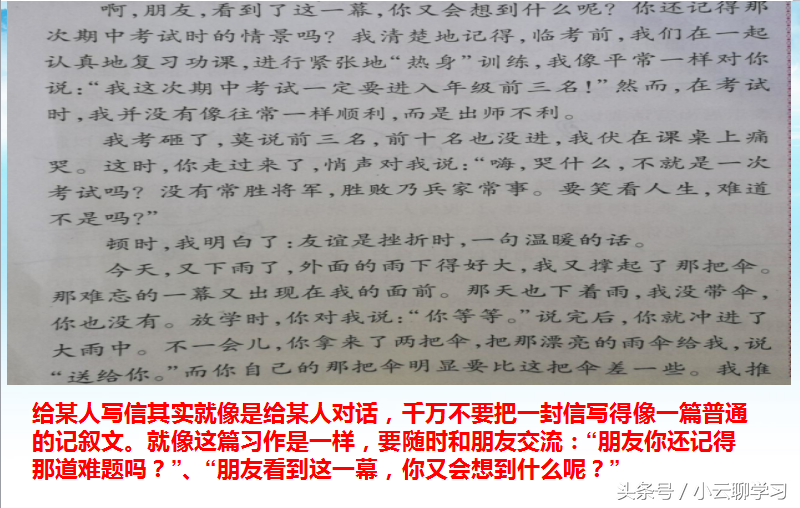 啊，朋友，看到了这一幕，你又会想到什么呢？你还记得那
次期中考试时的情景吗？我清楚地记得，临考前，我们在一起
认真地复习功课，进行紧张地“热身”训练，我像平常一样对你
说：“我这次期中考试一定要进入年级前三名！”然而，在考试
时，我并没有像往常一样顺利，而是出师不利。
我考砸了，莫说前三名，前十名也没进，我伏在课桌上痛
哭。这时，你走过来了，悄声对我说：“嗨，哭什么，不就是一次
考试吗？没有常胜将军，胜败乃兵家常事。要笑看人生，难道
不是吗？”
顿时，我明白了：友谊是挫折时，一句温暖的话。
今天，又下雨了，外面的雨下得好大，我又撑起了那把伞。
那难忘的一幕又出现在我的面前。那天也下着雨，我没带伞，
你也没有。放学时，你对我说：“你等等。”说完后，你就冲进了
大雨中。不一会儿，你拿来了两把伞，把那漂亮的雨伞给我，说
“送给你。”而你自己的那把伞明显要比这把伞差一些。我推
给某人写信其实就像是给某人对话，千万不要把一封信写得像一篇普通
的记叙文。就像这篇习作是一样，要随时和朋友交流：“朋友你还记得
那道难题吗？”、“朋友看到这一幕，你又会想到什么呢？”
头条号／小云聊学习